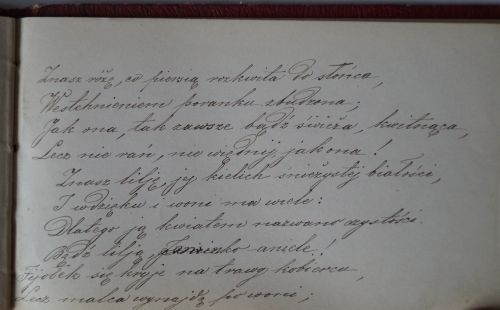 Znasz różę, co piersią rozkwita do słońca,
Westchnieniem poranku zbudzona;
Jak ona, tak zawsze bądź świeża, kwitnąca,
Lecz nie rań, nie więdnij jak ona!
Znasz lilję, jéj kielich śnieżystéj białości,
I wdzięku i woni ma wiele:
Dlatego ją kwiatem nazwano czystości
Bądź lilją, aniele!
Fijołek się kryje na trawy kobiercu,
Lecz malca wynajdą po woni;